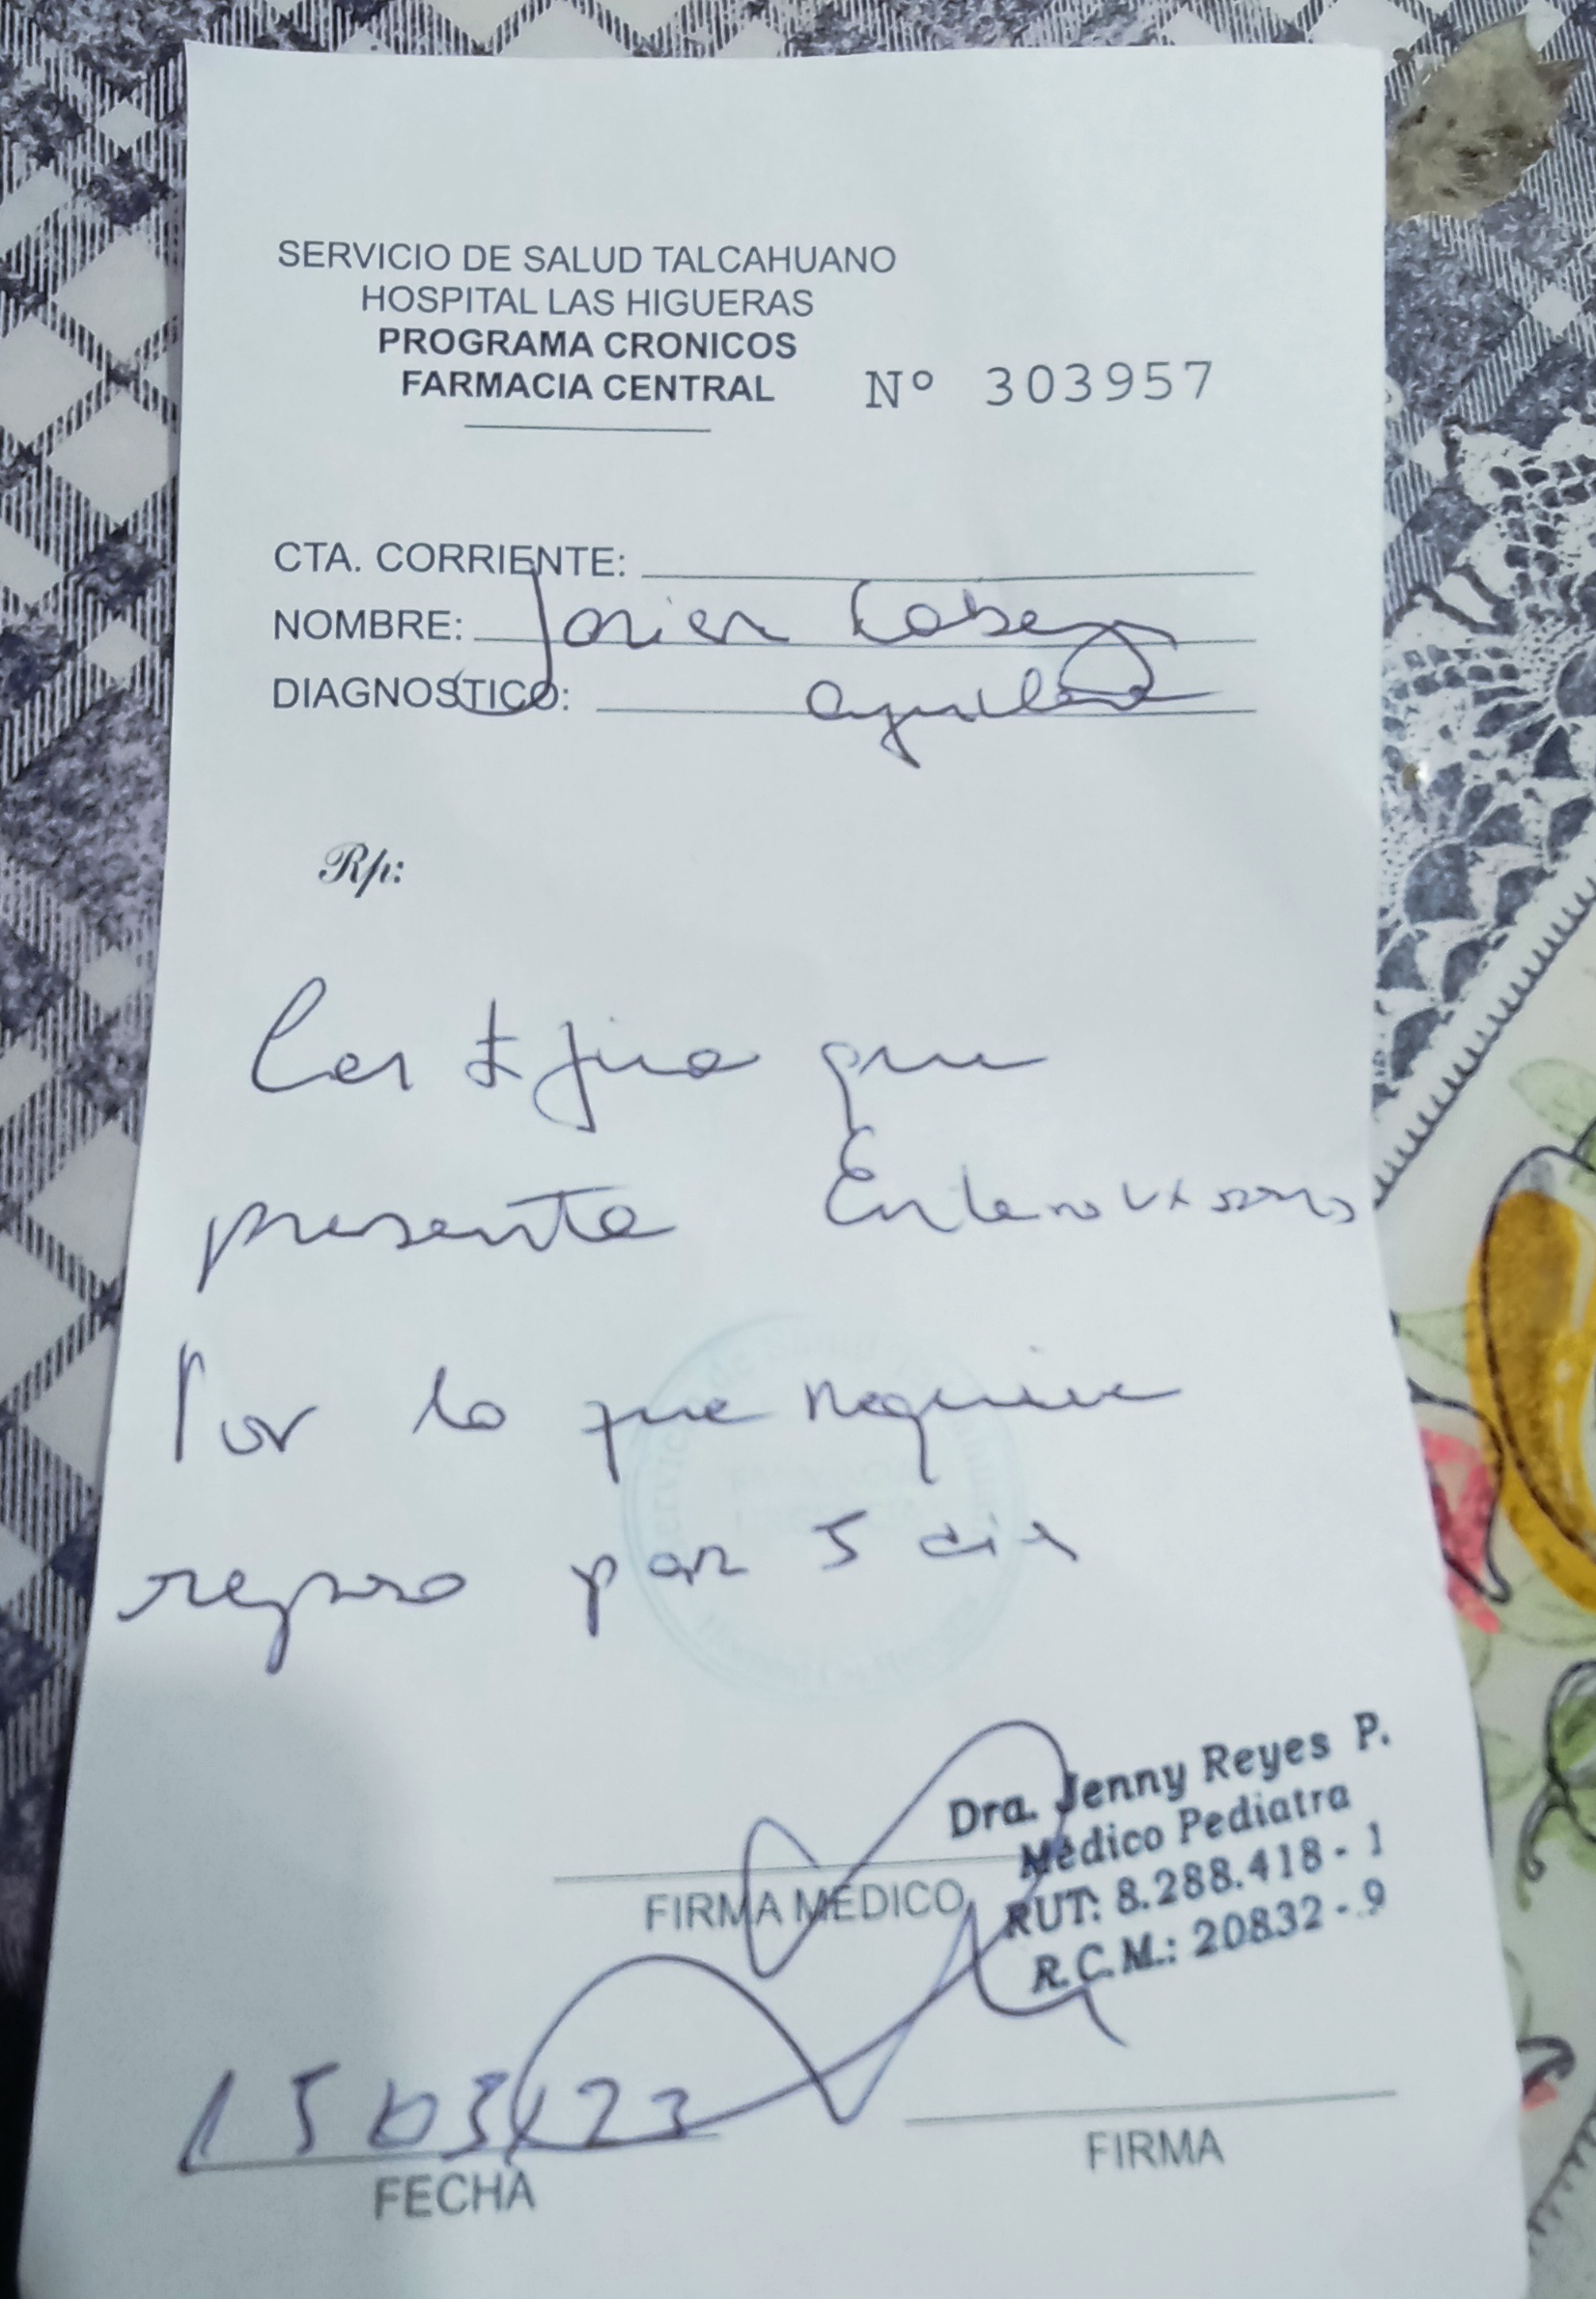 SERVICIO DE SALUD TALCAHUANO
HOSPITAL LAS HIGUERAS
PROGRAMA CRONICOS
FARMACIA CENTRAL Nº 303957
CTA. CORRIENTE:
NOMBRE: Javier
DIAGNOSTICO:
Rp:
Certifica que
presenta
Por lo que requiere
reposo por 5 dias
Dra. Jenny Reyes P.
Médico Pediatra
RUT: 8.288.418-1
R.C.M.: 20832-9
FIRMA MEDICO
15/03/23
FECHA
FIRMA